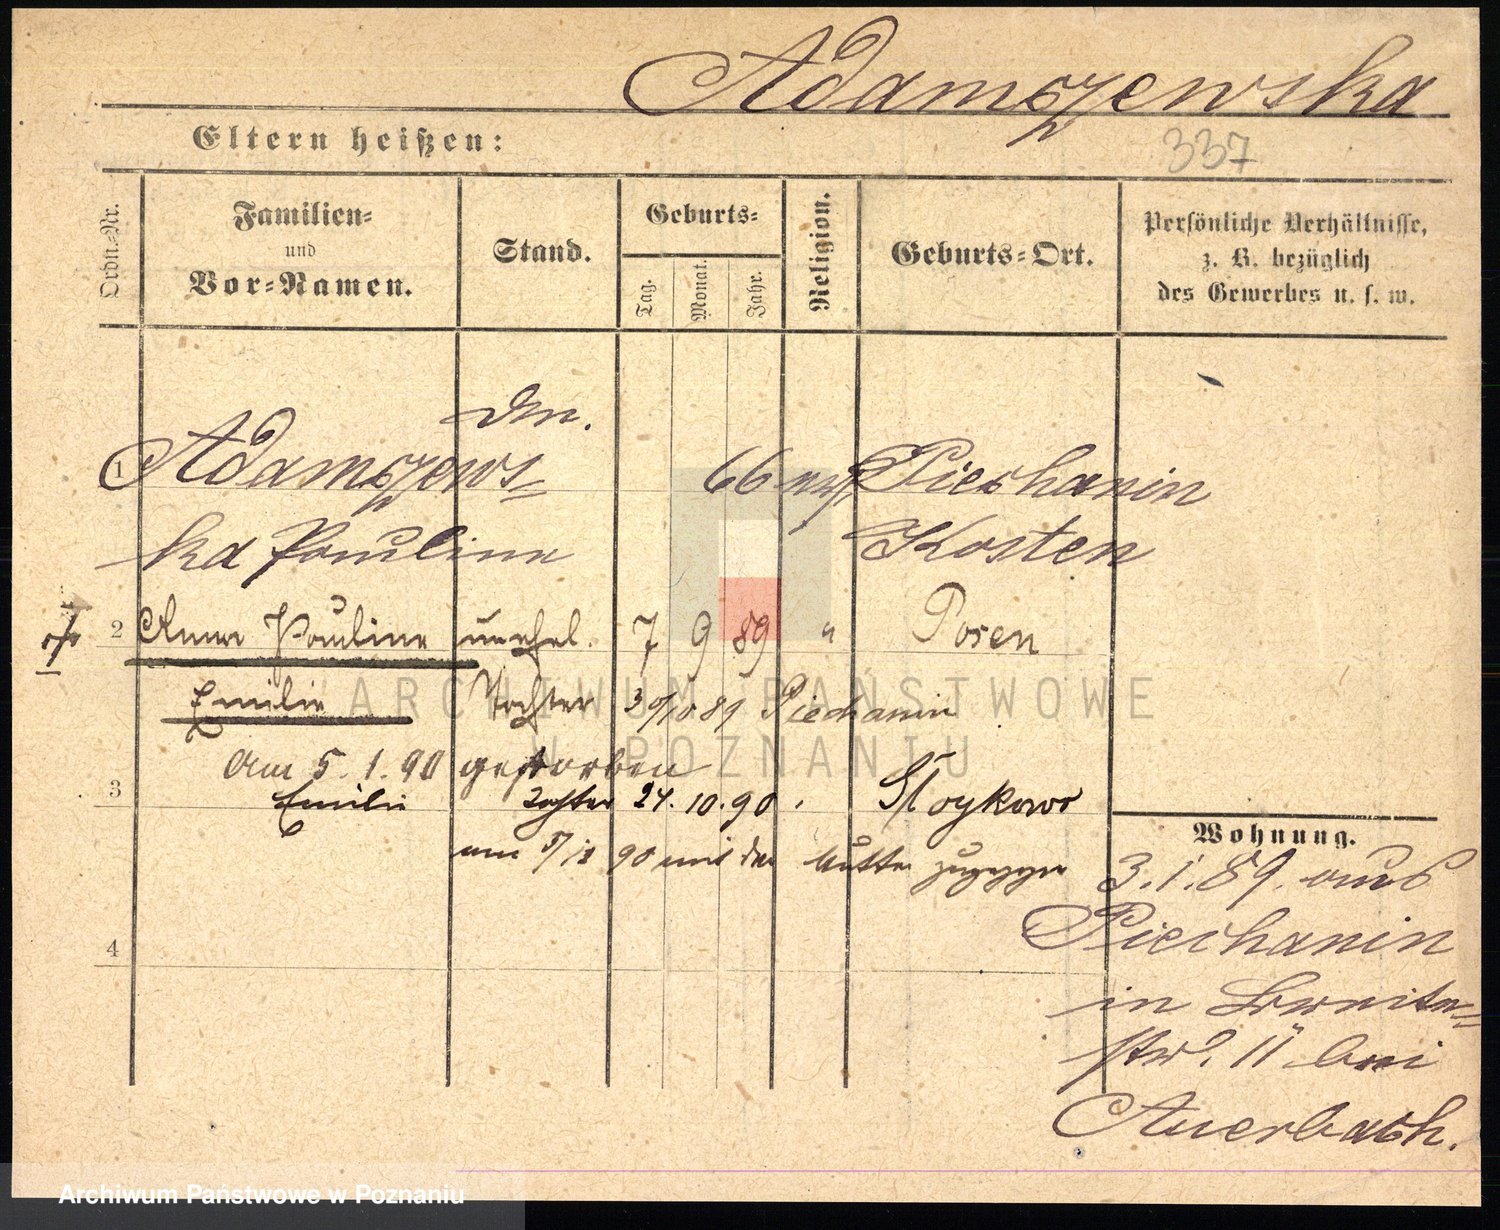 Adamszewska
Eltern heißen:
337
Ordn.-Nr.
Familien-
und
Vor-Namen.
Stand.
Geburts-
Tag.
Monat.
Jahr.
Religion.
Geburts-Ort.
Persönliche Verhältnisse,
z. B. bezüglich
des Gewerbes u. s. w.
1 Adamszews- 66 Piechanin
ka Pauline Kosten
2 Anna Pauline unehel. 7 9 89 " Posen
Emilie Tochter 3 0/10 89 Piechanin
Am 5.1.90 gestorben
3 Emilie Tochter 24.10.90 Stoykowo
am 5/12 90 mit der Mutter
4
Wohnung.
3.1.89. aus
Piechanin
in Breite-
str. 11 bei
Auerbach.
ARCHIWUM PAŃSTWOWE
W POZNANIU
Archiwum Państwowe w Poznaniu